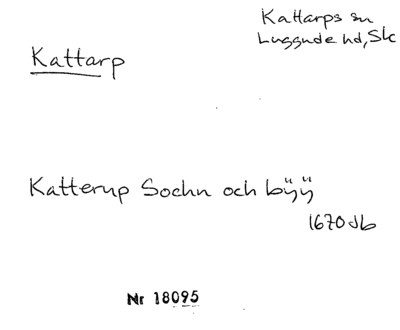 Kattarps sn
Luggude hd, Sk
Kattarp
Katterup Sochn och bÿÿ
1670 Jb
Nr 18095